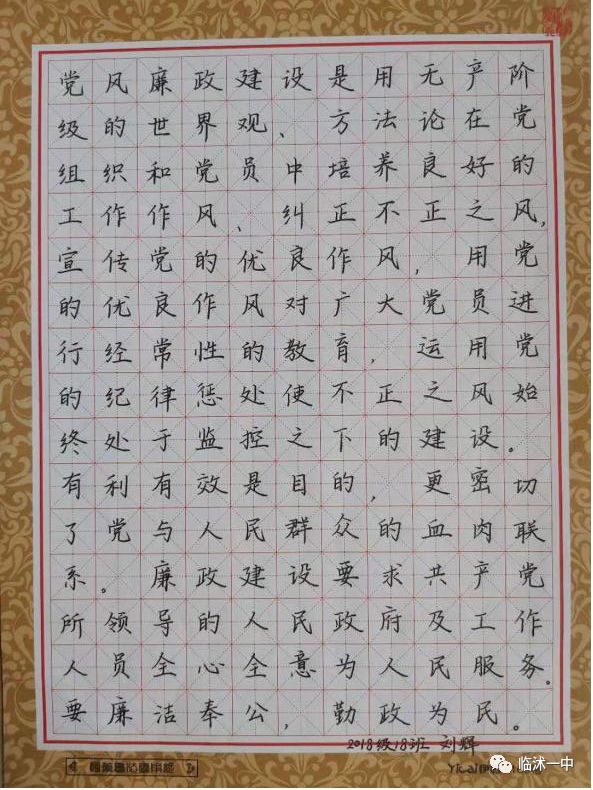 党风廉政建设是用无产阶
级的世界观、方法论在党
组织和党员中培养良好的
工作作风、纠正不正之风，
宣传党的优良作风，用党
的优良作风对广大党员进
行经常性的教育，运用党
的纪律惩处使不正之风始
终处于监控之下的建设。
有利有效是目的，更密切
了党与人民群众的血肉联
系。廉政建设要求共产党
所领导的人民政府及工作
人员全心全意为人民服务。
要廉洁奉公，勤政为民。
2018级18班 刘辉
临沭一中